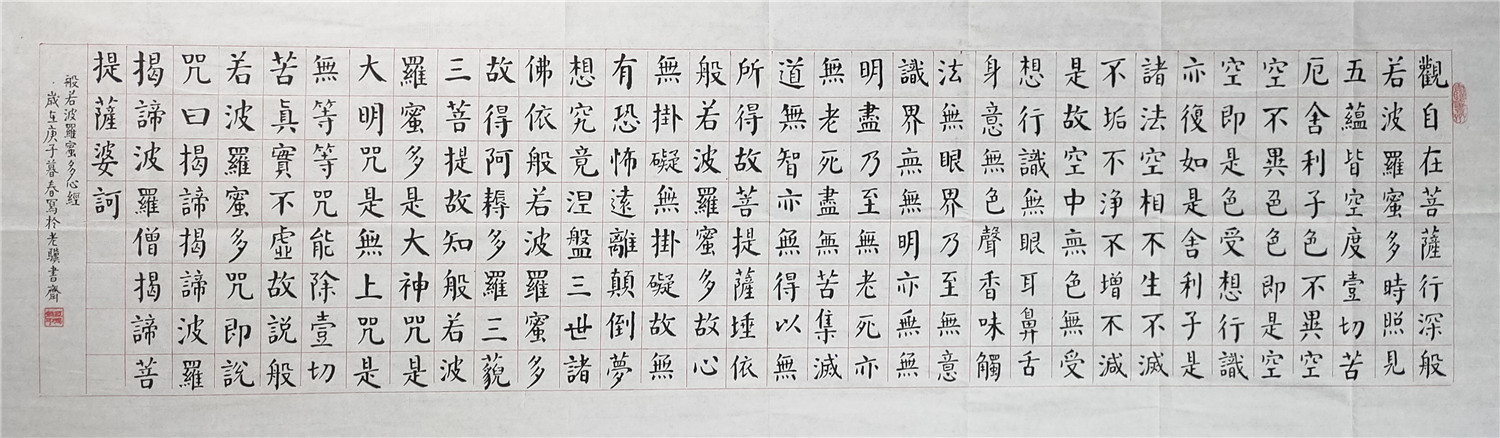 觀自在菩薩行深般
若波羅蜜多時照見
五蘊皆空度壹切苦
厄舍利子色不異空
空不異色色即是空
空即是色受想行識
亦復如是舍利子是
諸法空相不生不滅
不垢不淨不增不減
是故空中無色無受
想行識無眼耳鼻舌
身意無色聲香味觸
法無眼界乃至無意
識界無無明亦無無
明盡乃至無老死亦
無老死盡無苦集滅
道無智亦無得以無
所得故菩提薩埵依
般若波羅蜜多故心
無掛礙無掛礙故無
有恐怖遠離顛倒夢
想究竟涅盤三世諸
佛依般若波羅蜜多
故得阿耨多羅三藐
三菩提故知般若波
羅蜜多是大神咒是
大明咒是無上咒是
無等等咒能除壹切
苦眞實不虛故說般
若波羅蜜多咒即說
咒曰揭諦揭諦波羅
揭諦波羅僧揭諦菩
提薩婆訶
般若波羅蜜多心經
歲在庚子暮春寫於老驥書齋